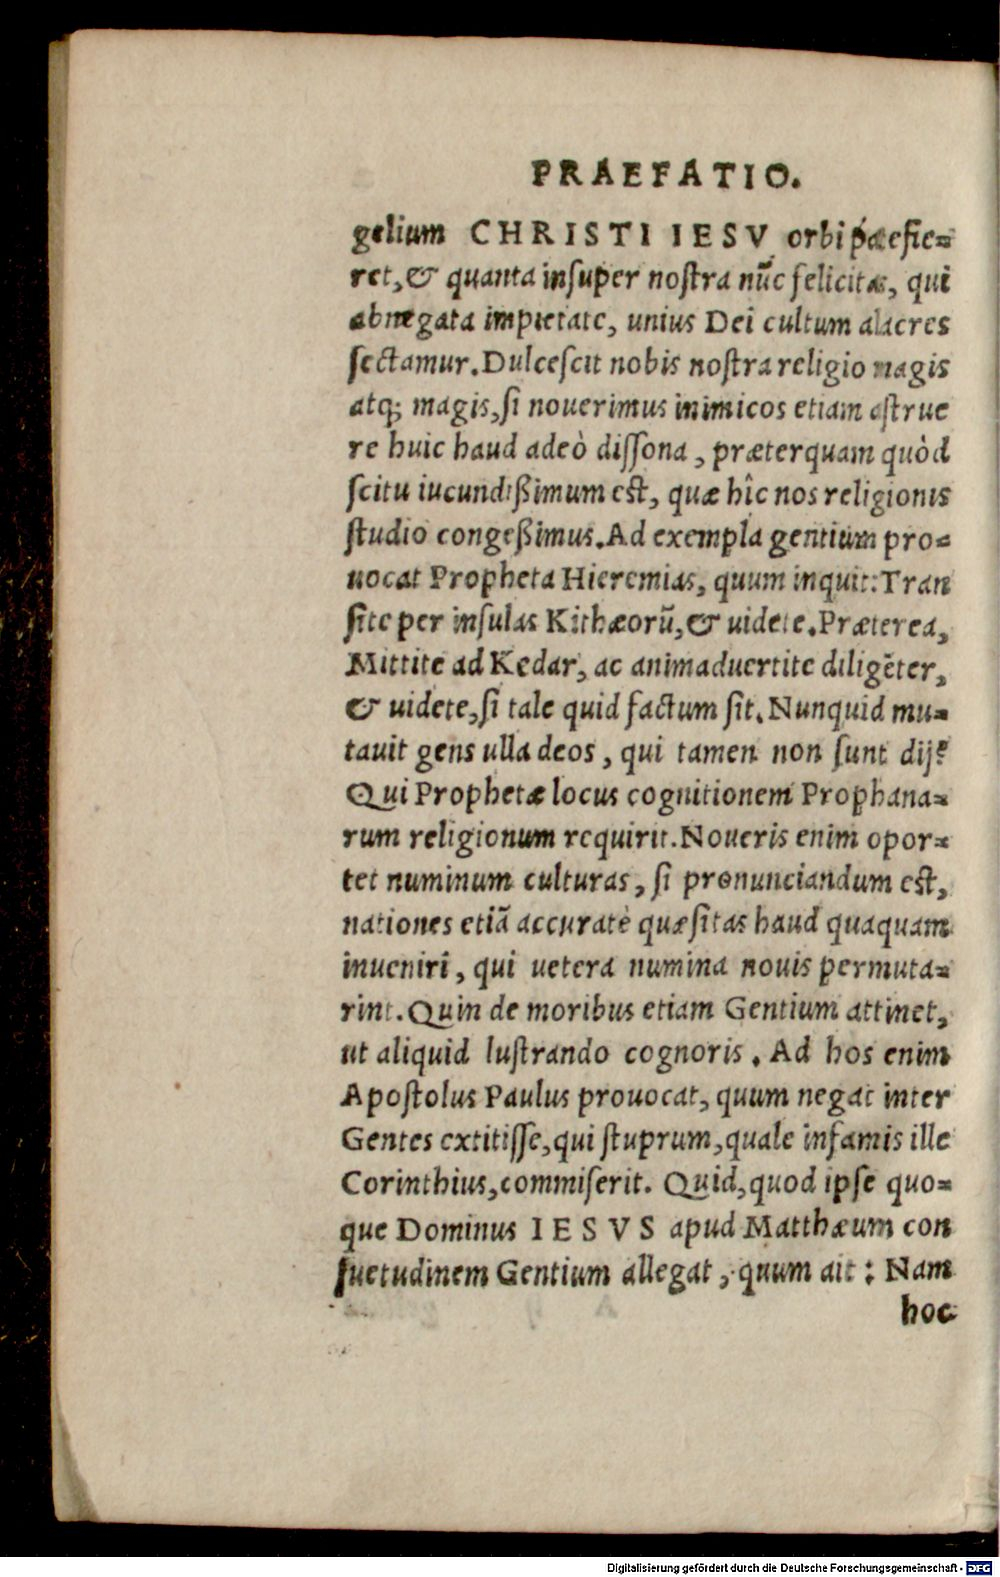 PRAEFATIO.
gelium CHRISTI IESV orbi ṕæefie=
ret, & quanta insuper nostra nūc felicitas, qui
abnegata impietate, unius Dei cultum alacres
sectamur. Dulcescit nobis nostra religio magis
atq; magis, si nouerimus inimicos etiam astrue
re huic haud adeò dissona, præterquam quòd
scitu iucundißimum est, quæ hîc nos religionis
studio congeßimus. Ad exempla gentium pro=
uocat Propheta Hieremias, quum inquit: Tran
site per insulas Kithæorū, & uidete. Præterea,
Mittite ad Kedar, ac animaduertite diligēter,
& uidete, si tale quid factum sit. Nunquid mu=
tauit gens ulla deos, qui tamen non sunt dij?
Qui Prophetæ locus cognitionem Prophana=
rum religionum requirit. Noueris enim opor=
tet numinum culturas, si pronunciandum est,
nationes etiā accuratè quæsitas haud quaquam
inueniri, qui uetera numina nouis permuta=
rint. Quin de moribus etiam Gentium attinet,
ut aliquid lustrando cognoris. Ad hos enim
Apostolus Paulus prouocat, quum negat inter
Gentes extitisse, qui stuprum, quale infamis ille
Corinthius, commiserit. Quid, quod ipse quo=
que Dominus IESVS apud Matthæum con
suetudinem Gentium allegat, quum ait: Nam
hoc
Digitalisierung gefördert durch die Deutsche Forschungsgemeinschaft - DFG